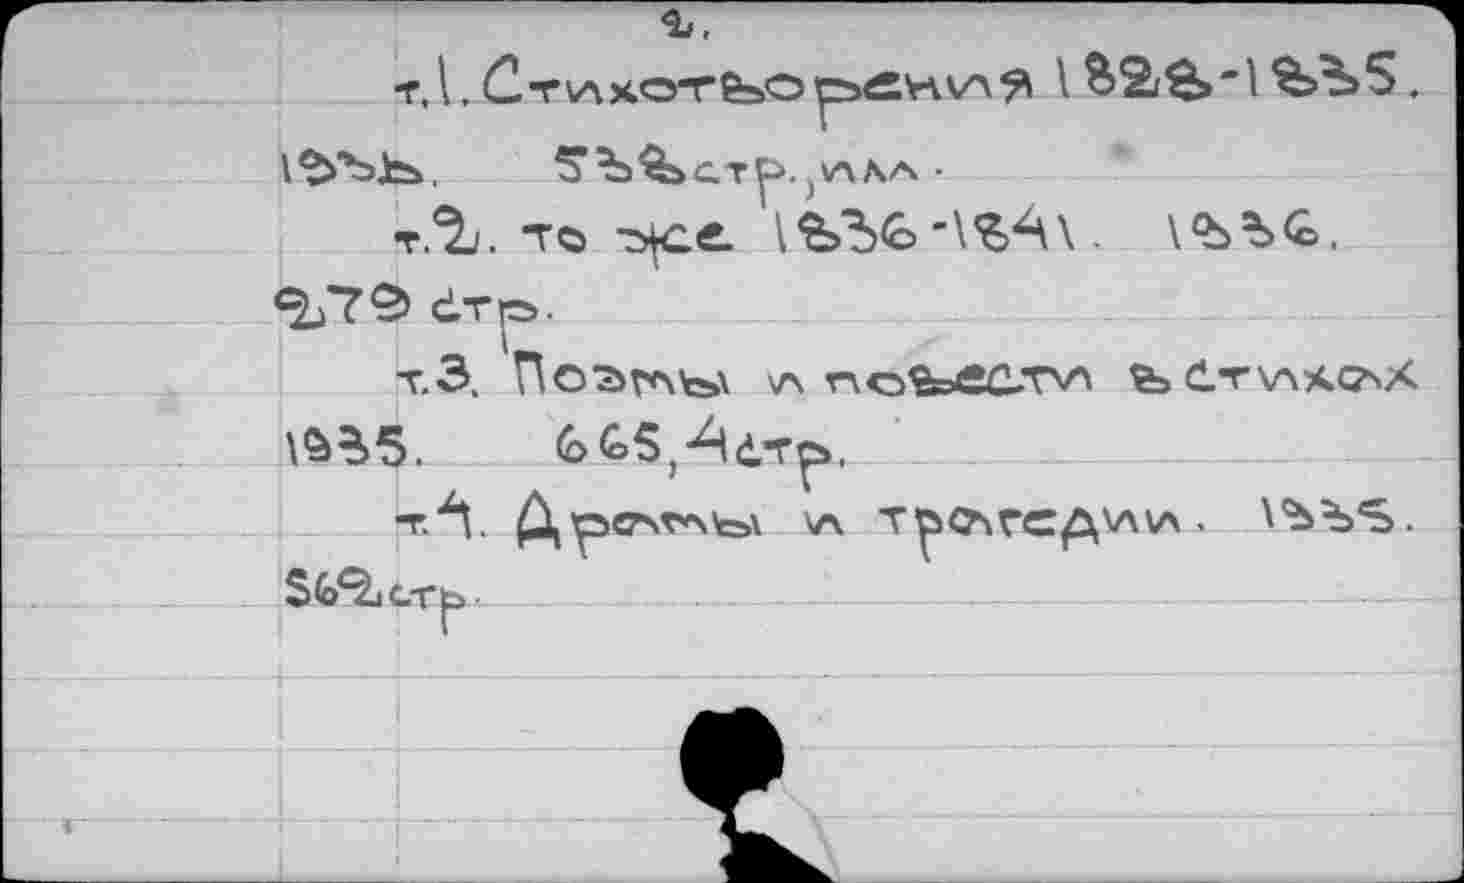 2.
т.1. Стихотворения 1828-1835.
1936. 538стр.,илл.
т.2. то же 1836-1841. 1936.
279 стр.
т.3. Поэмы и повести в стихах
1935. 665,4стр.
т.4. Драмы и трагедии. 1935.
562стр.